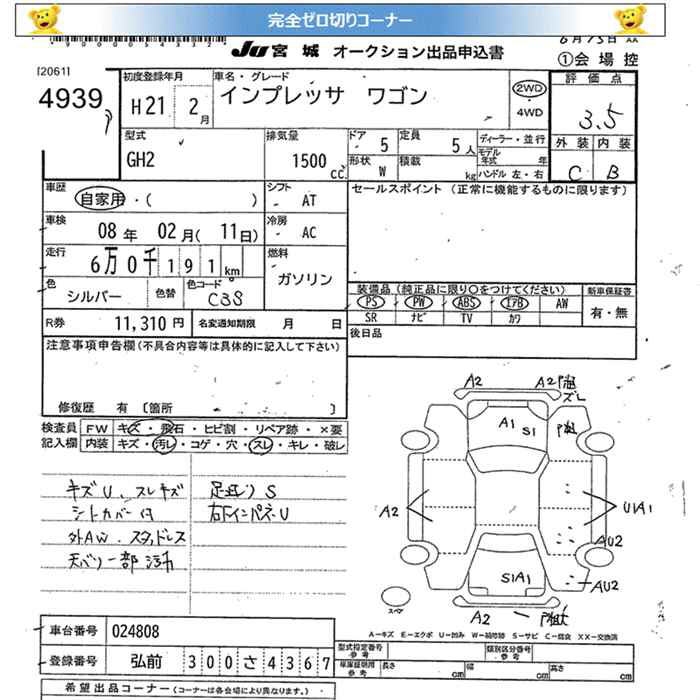 完全ゼロ切りコーナー
JU宮城 オークション出品申込書
6月15日
①会場控
[2061]
4939
初度登録年月
H21 2月
車名・グレード
インプレッサ ワゴン
2WD
4WD
評価点
3.5
型式
GH2
排気量
1500 cc
ドア 5
定員 5人
形状 W
積載 kg
ディーラー・並行
モデル年式 年
ハンドル 左・右
外装 内装
C B
車歴
自家用・( )
シフト
AT
セールスポイント (正常に機能するものに限ります)
車検
08年 02月(11日)
冷房
AC
走行
6万0千191km
燃料
ガソリン
色
シルバー
色替
色コード
C3S
装備品 (純正品に限り○をつけてください)
PS PW ABS エアB AW
SR ナビ TV カワ
新車保証書
有・無
R券 11,310円
名変通知期限 月 日
後日品
注意事項申告欄(不具合内容等は具体的に記入して下さい)
修復歴 有 [箇所 ]
検査員記入欄
FW キズ・飛石・ヒビ割・リペア跡・×要
内装 キズ・汚レ・コゲ・穴・スレ・キレ・破レ
キズU、スレキズ
シートカバー付
外AW、スタッドレス
天バリ一部汚れ
足廻りS
右下インパネU
A2
A2
ズレ
A1
S1
A2
U1A1
AU2
S1A1
AU2
A2
スペア
A―キズ E―エクボ U―凹み W―補修跡 S―サビ C―腐食 XX―交換済
車台番号 024808
登録番号 弘前 300さ4367
型式指定番号 参考
類別区分番号 参考
車庫証明用 参考
長さ cm
幅 cm
高さ cm
希望出品コーナー (コーナーは各会場により異なります。)